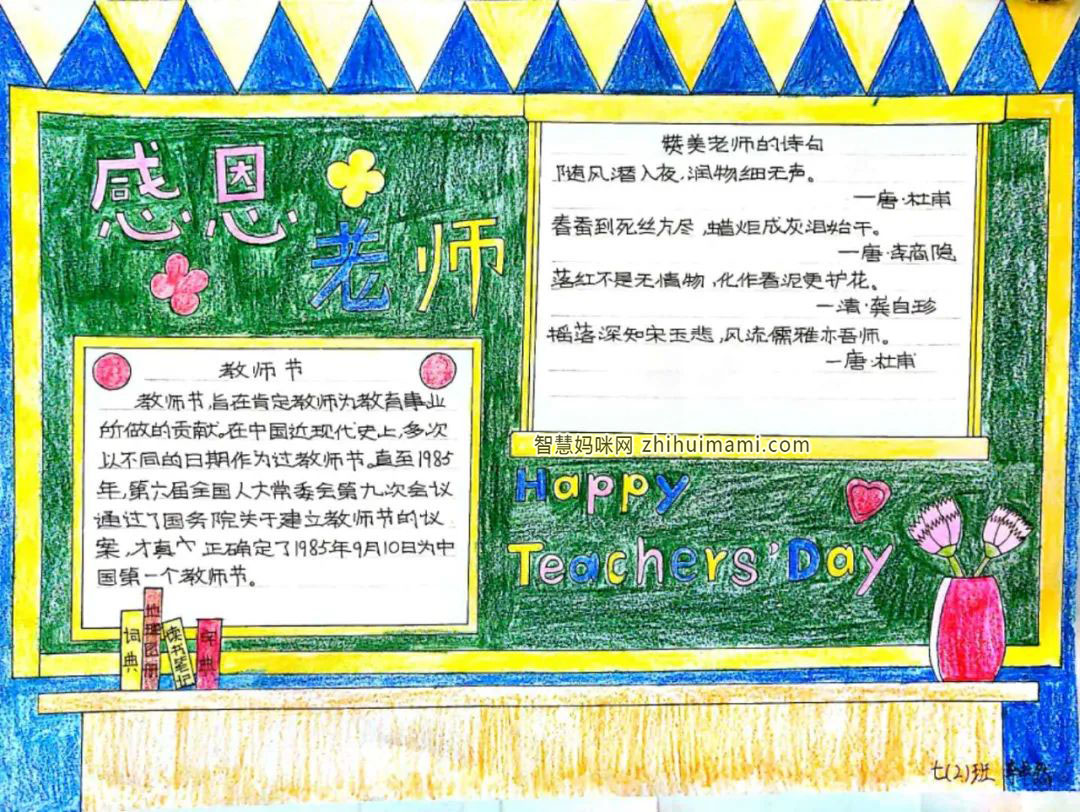 感恩
老师
赞美老师的诗句
随风潜入夜,润物细无声。
—唐·杜甫
春蚕到死丝方尽,蜡炬成灰泪始干。
—唐·李商隐
落红不是无情物,化作春泥更护花。
—清·龚自珍
摇落深知宋玉悲,风流儒雅亦吾师。
—唐·杜甫
教师节
教师节,旨在肯定教师为教育事业
所做的贡献。在中国近现代史上,多次
以不同的日期作为过教师节。直至1985
年,第六届全国人大常委会第九次会议
通过了国务院关于建立教师节的议
案,才真 正确定了1985年9月10日为中
国第一个教师节。
智慧妈咪网 zhihuimami.com
Happy
Teachers' Day
词典
地理图册
读书笔记
字典
七(2)班